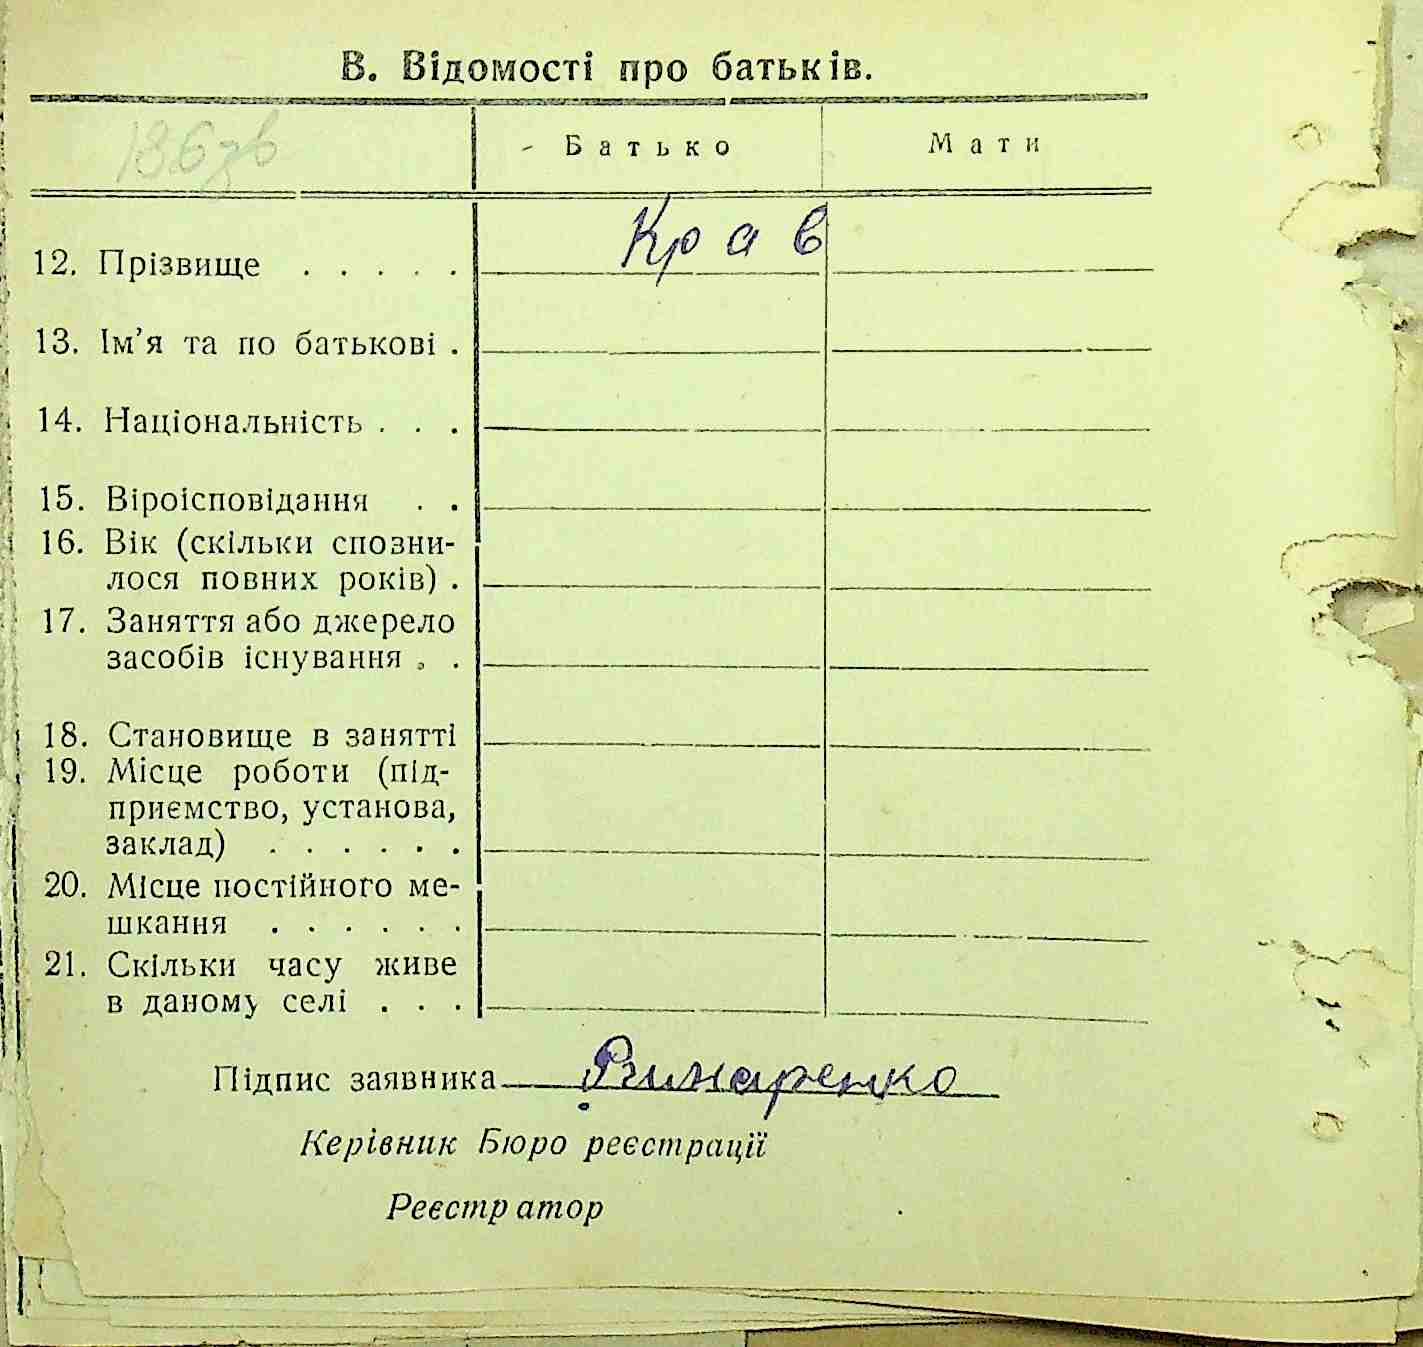 В. Відомості про батьків.
136зв
Батько Мати
12. Прізвище . . . . . Крав
13. Ім’я та по батькові .
14. Національність . . .
15. Віроісповідання . .
16. Вік (скільки спозни-
лося повних років) .
17. Заняття або джерело
засобів існування . .
18. Становище в занятті
19. Місце роботи (під-
приємство, установа,
заклад) . . . . . .
20. Місце постійного ме-
шкання . . . . . .
21. Скільки часу живе
в даному селі . . .
Підпис заявника Римаренко
Керівник Бюро реєстрації
Реєстратор